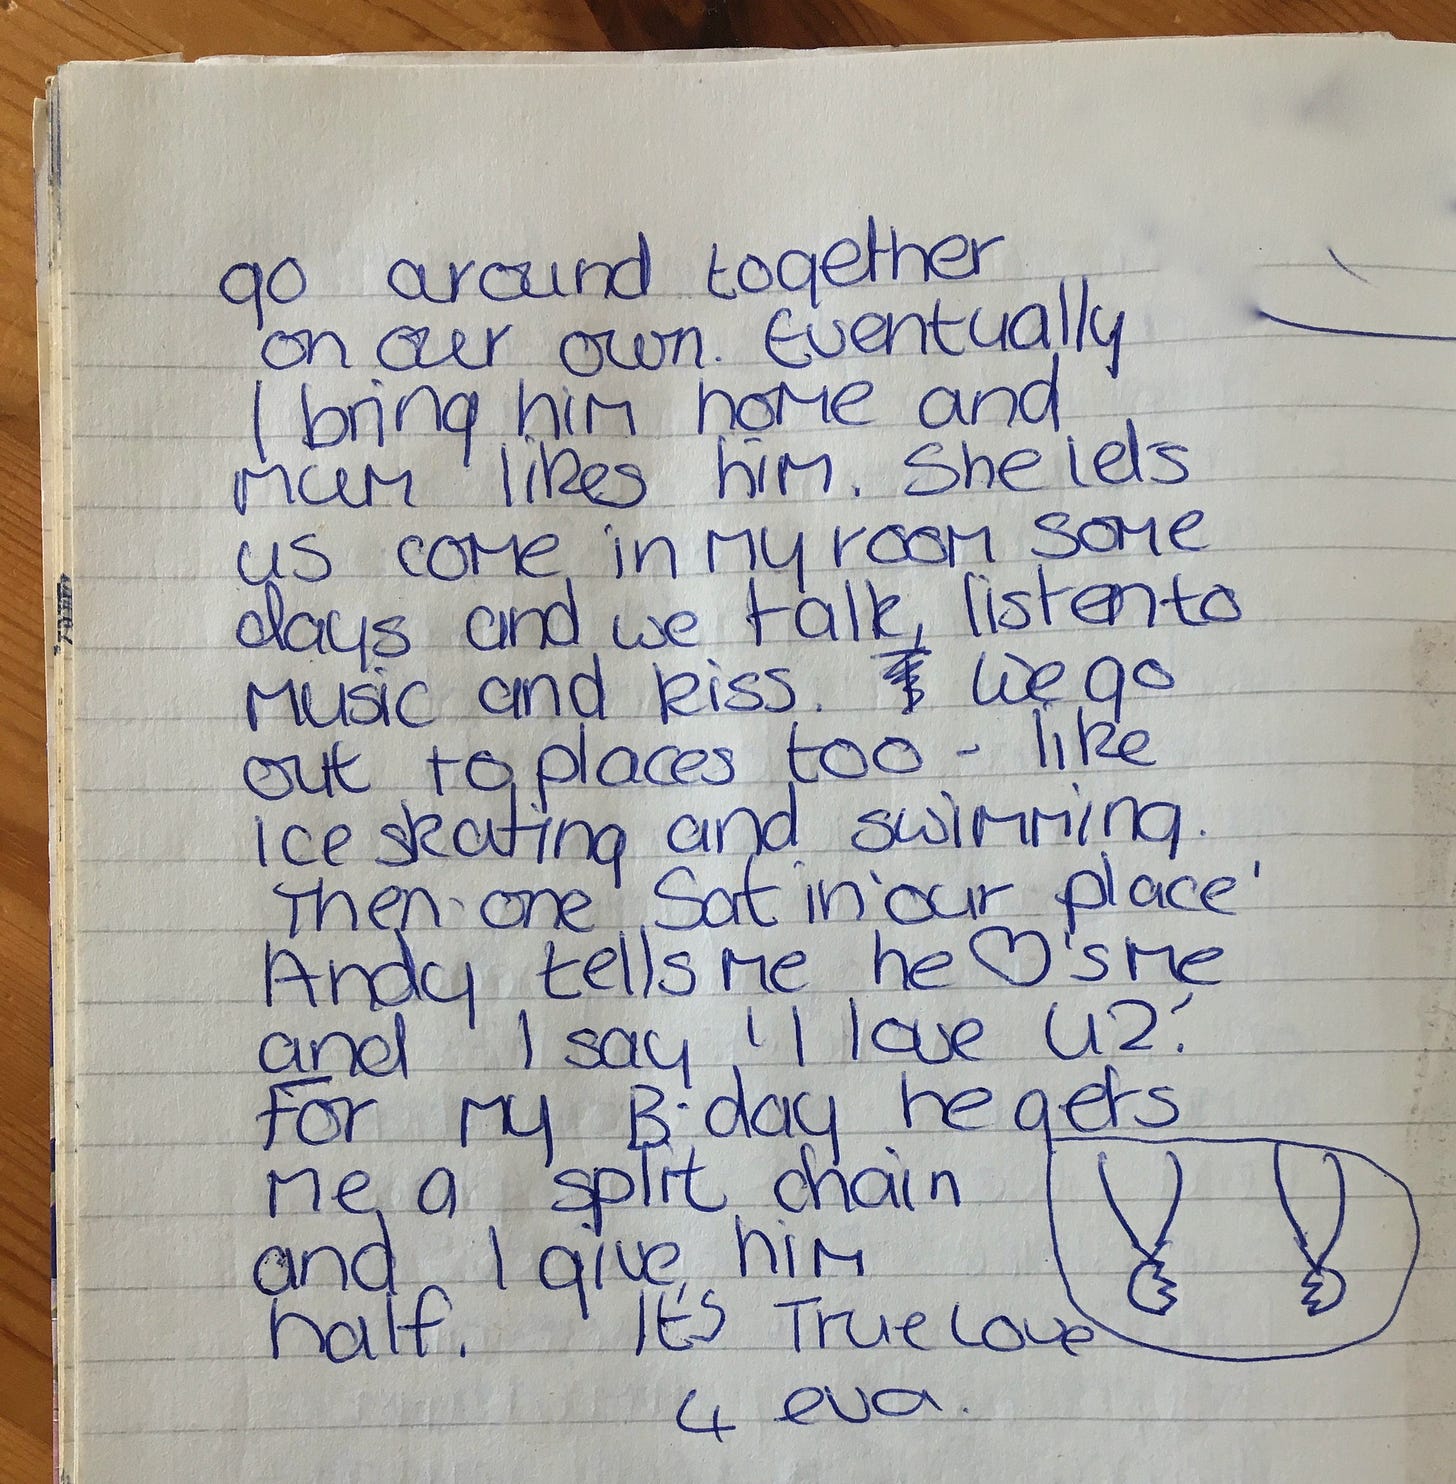 go around together
on our own. Eventually
I bring him home and
mum likes him. She lets
us come in my room some
days and we talk, listen to
music and kiss. We go
out to places too - like
ice skating and swimming.
Then one Sat in 'our place'
Andy tells me he ♡'s me
and I say 'I love U2.'
For my B-day he gets
me a split chain
and I give him
half. It's True Love
4 eva.